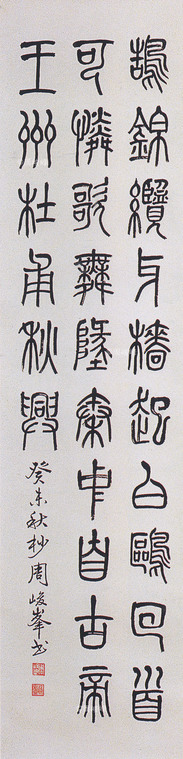 鵠錦纜牙檣起白鷗回首
可憐歌舞地秦中自古帝
王州杜甫秋興
癸未秋杪周峻峯书